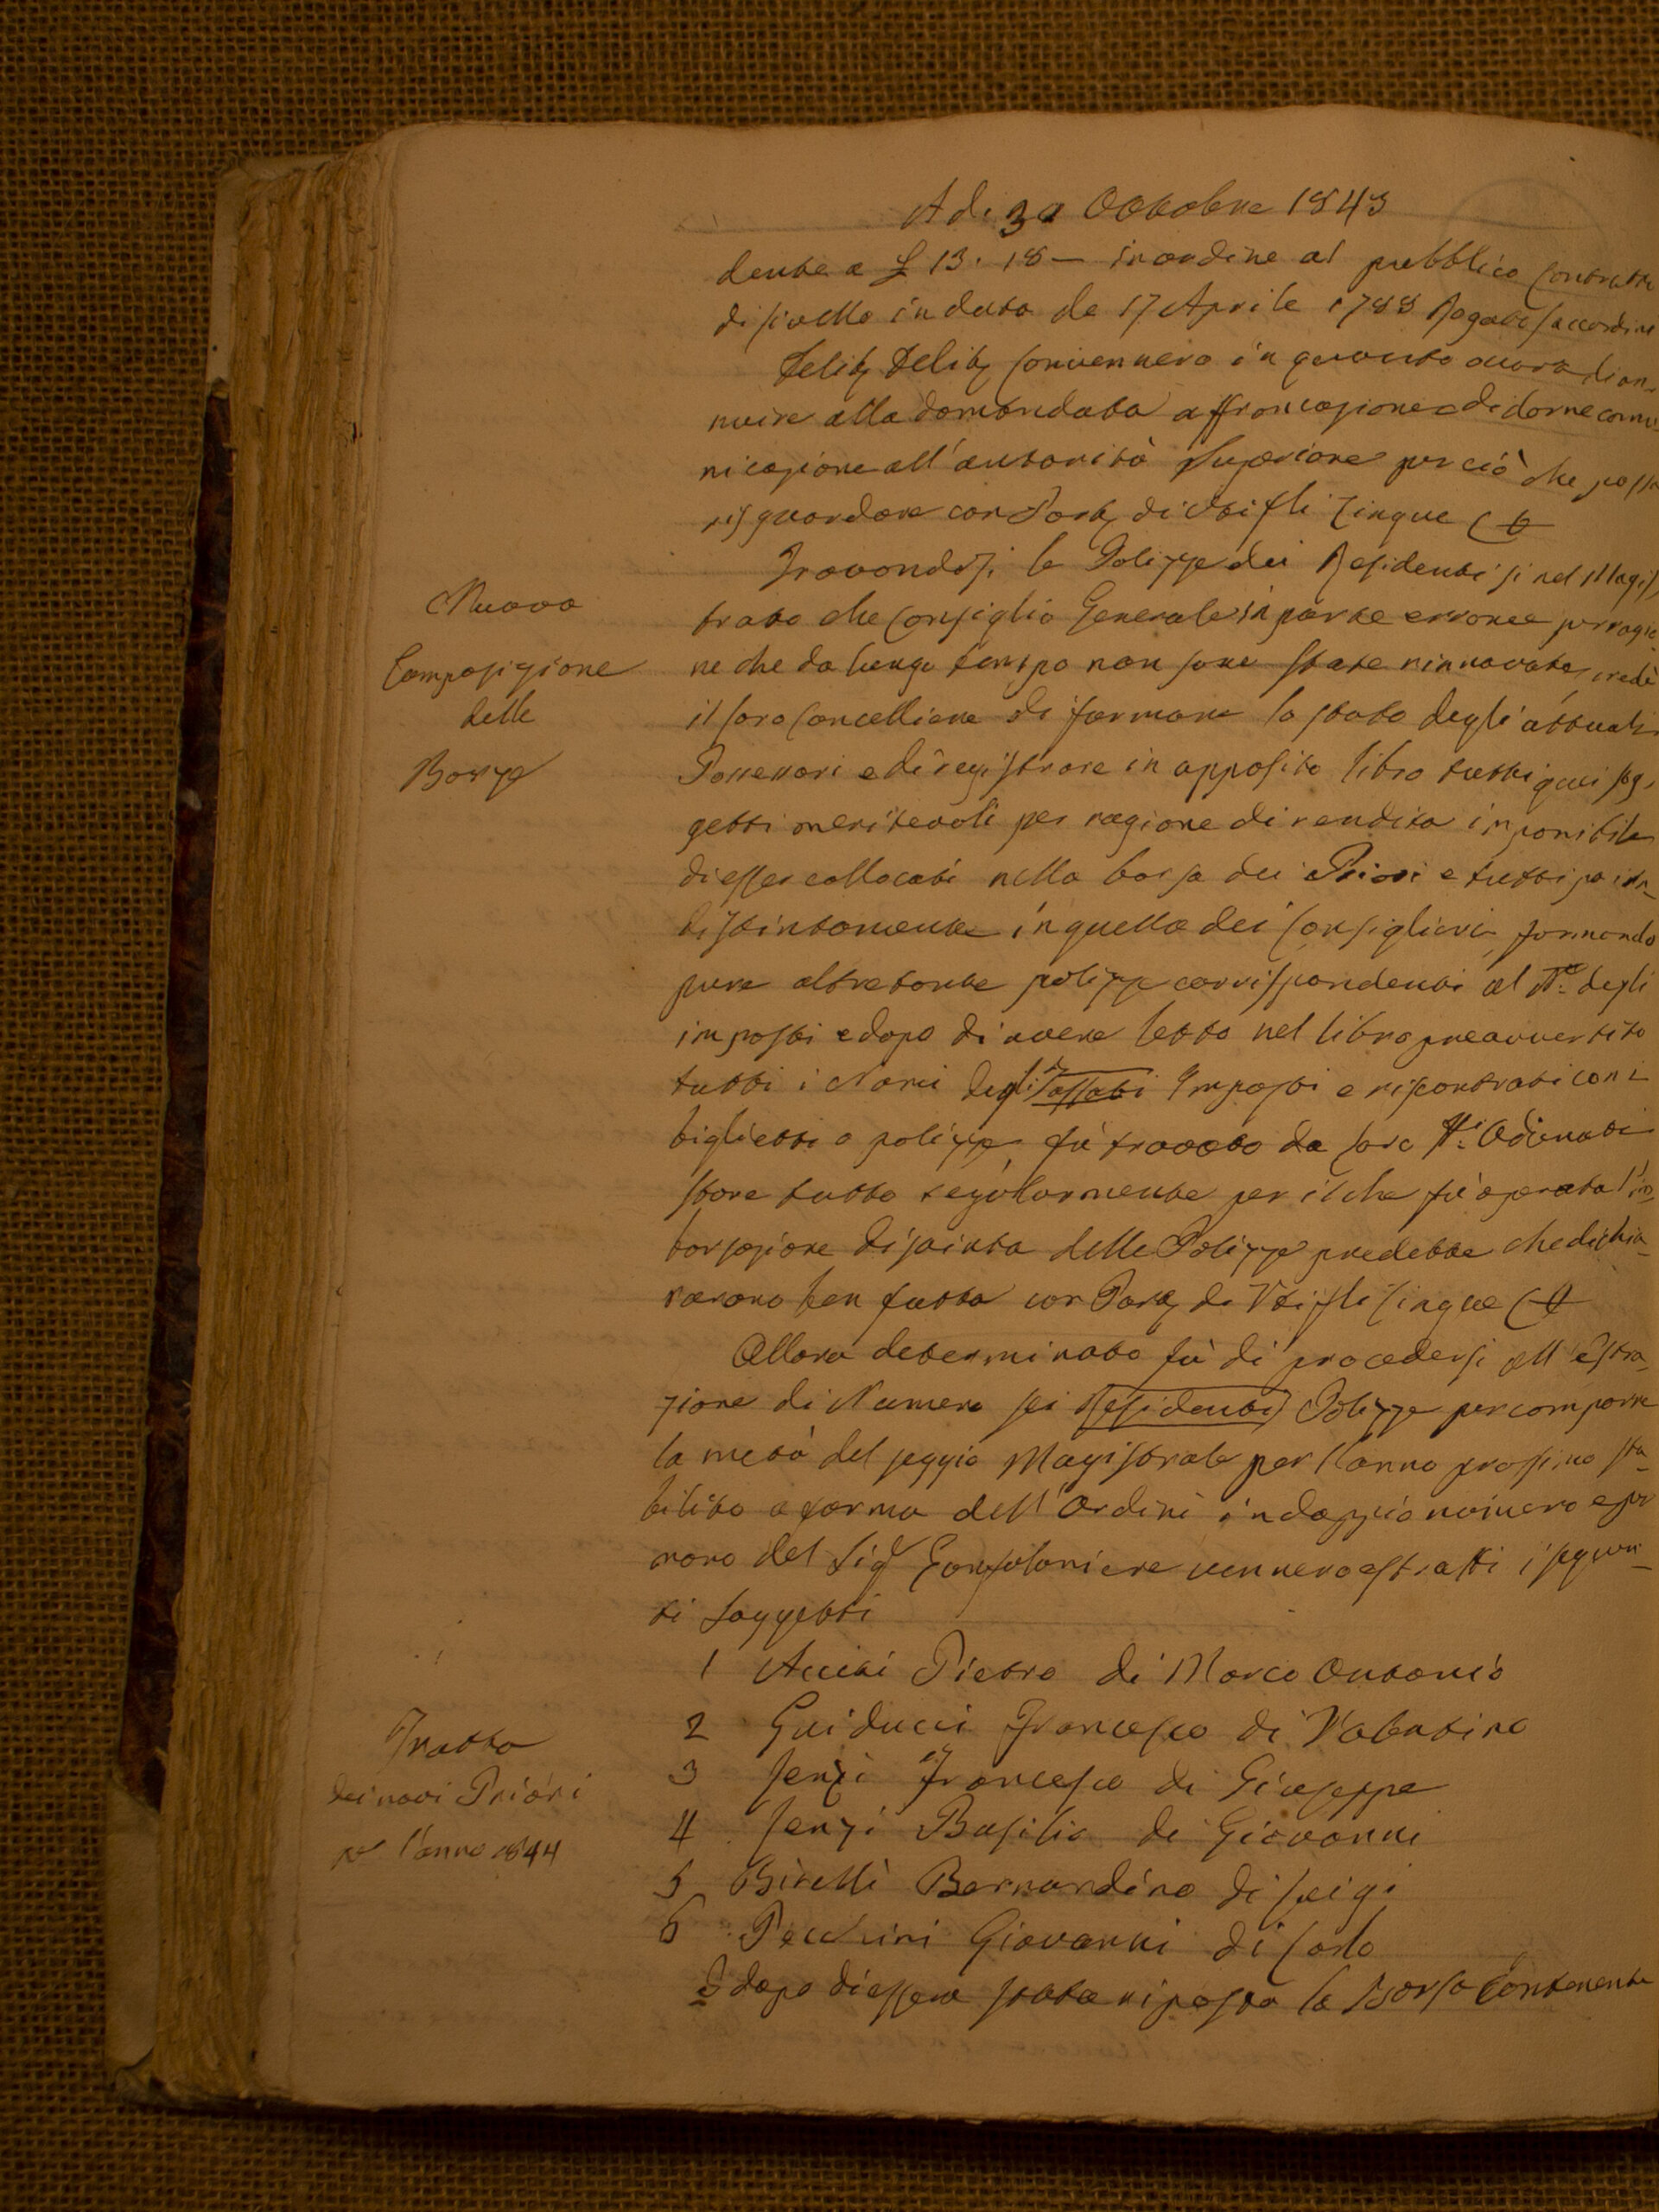 Adi 30 Ottobre 1843
dente a £ 13. 18 — in ordine al pubblico Contratto
di livello in data de 17 Aprile 1788 Rogato
Delib Delib convennero in quanto di an-
nuire alla domandata affrancazione e di darne comu-
nicazione all'autorità Superiore per ciò che possa
risguardare con Part di Voti fli Cinque
Nuova
Composizione
delle
Borze
Trovandosi le Polizze dei Residenti si nel Magis
trato che Consiglio Generale in parte erronee per ragio
ne che da lungo tempo non sono state rinnovate, credè
il loro Cancelliere di formare lo stato degli attuali
Possessori e di registrare in apposito libro tutti quei sog-
getti meritevoli per ragione di rendita imponibile
di esser collocati nella borsa dei Priori e tutti poi in-
distintamente in quella dei Consiglieri formando
pure altretante polizze corrispondenti al N.º degli
imposti e dopo di avere letto nel libro preavvertito
tutti i Nomi degli Tassati Imposti e riscontrati con i
biglietti o polizze fù trovato da loro Adunati
stare tutto regolarmente per il che fù operata l'im
borsazione disgiunta delle Polizze predette che dichia-
rarono ben fatta con Part di Voti fli Cinque
Allora determinato fù di procedersi all'estra-
zione di Numero sei Residenti Polizze per comporre
la metà del seggio Magistrale per l'anno prossimo sta-
bilito a forma dell'Ordini in doppio numero e per
mano del Sig Gonfaloniere vennero estratti i seguen-
ti Soggetti
Tratta
dei novi Priori
per l'anno 1844
1 Aceti Pietro di Marco Antonio
2 Guiducci Francesco di Valentino
3 Lenzi Francesco di Giuseppe
4 Lenzi Basilio di Giovanni
5 Birelli Bernardino di Luigi
6 Pecchini Giovanni di Carlo
E dopo di essere stata riposta la Borsa Contenente